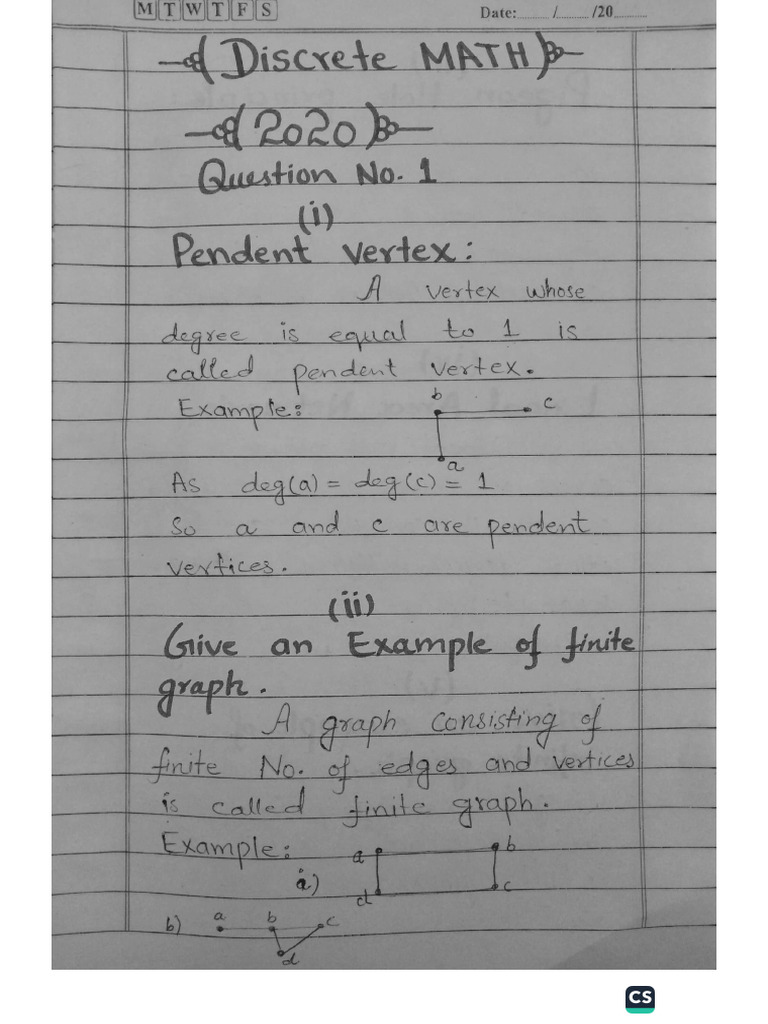 M T W T F S
Date: / /20
Discrete MATH
2020
Question No. 1
(i)
Pendent vertex:
A vertex whose
degree is equal to 1 is
called pendent vertex.
Example:
b c
a
As deg(a) = deg(c) = 1
So a and c are pendent
vertices.
(ii)
Give an Example of finite
graph.
A graph consisting of
finite No. of edges and vertices
is called finite graph.
Example:
a b
a)
d c
b) a b c
d
CS